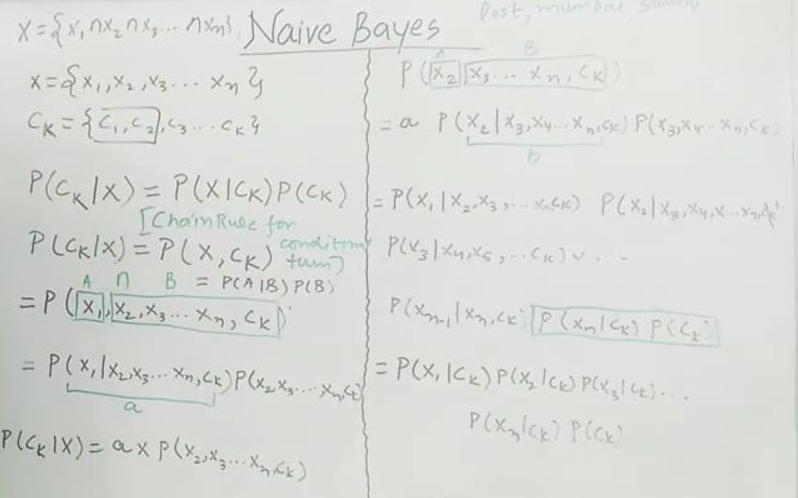 X = {x₁ ∩ x₂ ∩ x₃ ... ∩ xₙ}
Naive Bayes
X = {x₁, x₂, x₃ ... xₙ}
Cₖ = {C₁, C₂, C₃ ... Cₖ}
P(Cₖ|X) = P(X|Cₖ) P(Cₖ)
[Chain Rule for
P(Cₖ|X) = P(X, Cₖ)
A ∩ B = P(A|B) P(B)
= P(x₁, x₂, x₃ ... xₙ, Cₖ)
= P(x₁|x₂, x₃ ... xₙ, Cₖ) P(x₂, x₃ ..., xₙ, Cₖ)
a
P(Cₖ|X) = a x P(x₂, x₃ ... xₙ, Cₖ)
Post, mumbai,
A B
P(x₂, x₃ ... xₙ, Cₖ)
= a P(x₂|x₃, x₄ ... xₙ, Cₖ) P(x₃, x₄ ... xₙ, Cₖ
b
= P(x₁|x₂, x₃, ... xₙ, Cₖ) P(x₂|x₃, x₄, x ... xₙ, Cₖ)
P(x₃|x₄, x₅, ... Cₖ) ...
P(xₙ₋₁|xₙ, Cₖ) P(xₙ|Cₖ) P(Cₖ)
= P(x₁|Cₖ) P(x₂|Cₖ) P(x₃|Cₖ) ...
P(xₙ|Cₖ) P(Cₖ)